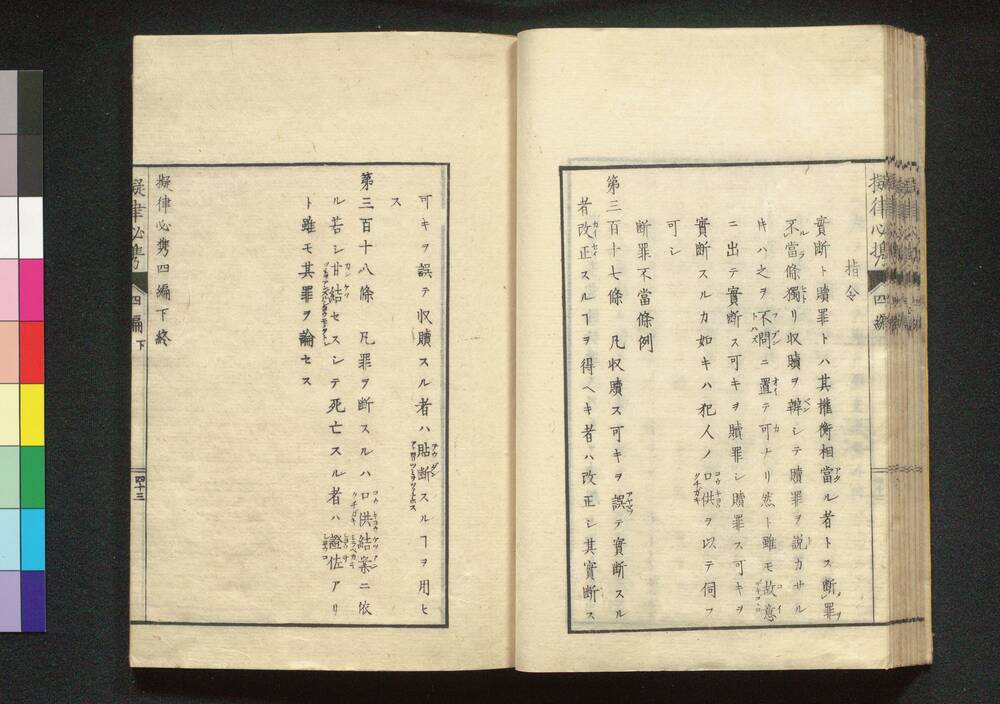 擬律必携 四編
指令
實斷ト贖罪トハ其權衡相當ル者トス斷罪
不當條獨リ収贖ヲ辨シテ贖罪ヲ説カサル
片ハ之ヲ不問ニ置テ可ナリ然ト雖モ故意
ニ出テ實斷ス可キヲ贖罪シ贖罪ス可キヲ
實斷スルカ如キハ犯人ノ口供ヲ以テ伺フ
可シ
斷罪不當條例
第三百十七條 凡収贖ス可キヲ誤テ實斷スル
者改正スルヿヲ得ヘキ者ハ改正シ其實斷ス
可キヲ誤テ収贖スル者ハ貼斷スルヿヲ用ヒ
ス
第三百十八條 凡罪ヲ斷スルハ口供結案ニ依
ル若シ甘結セスシテ死亡スル者ハ證佐アリ
ト雖モ其罪ヲ論セス
擬律必携四編下終
擬律必携 四編下 四十三